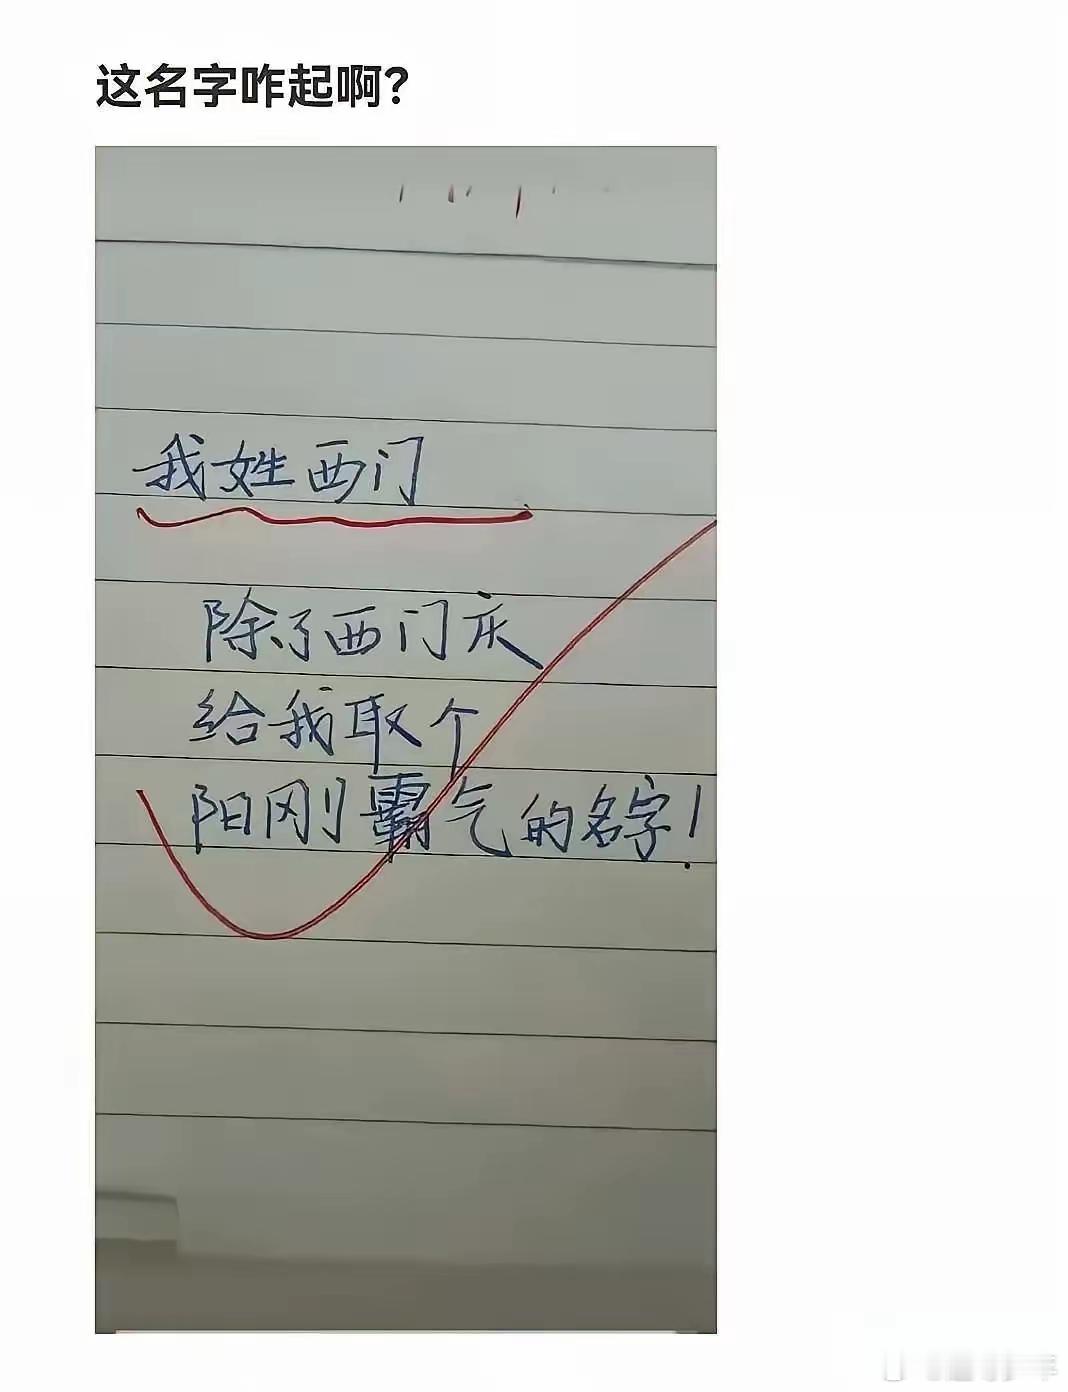 这名字咋起啊？
我姓西门
除了西门庆
给我取个
阳刚霸气的名字！